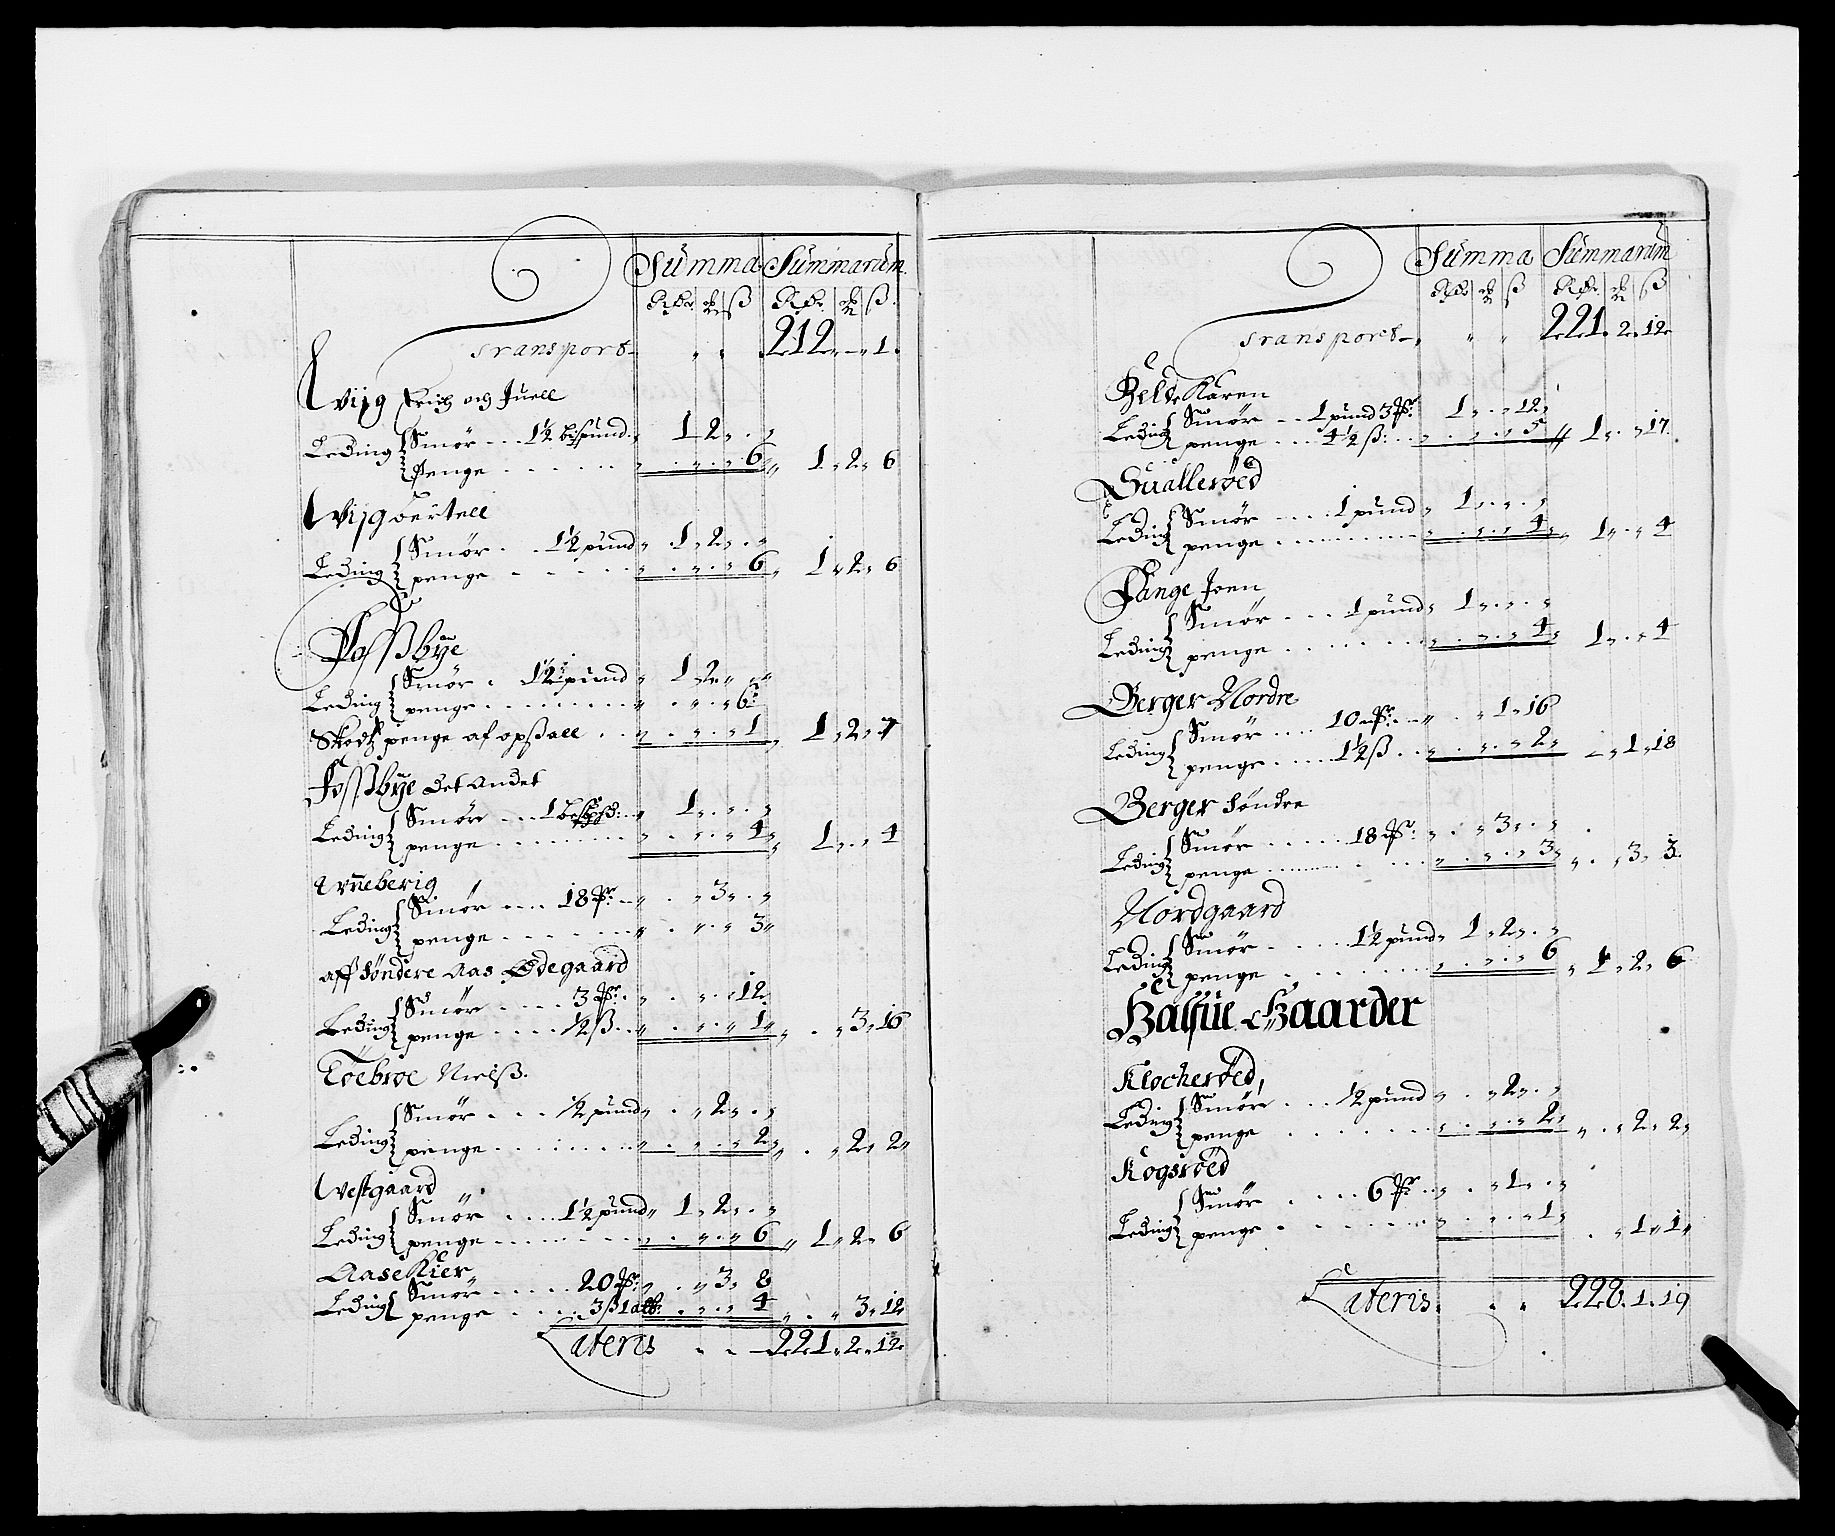 Summa Summarum
Rdr. ß Rdr. ß
Transport „ „ 212 „ — „ 1
Wiig Erich och Juell
Leding Smør . . . 1½ bispund „ 1 2 „ . „
Penge . . . . . . „ . „ . „ 6 „ 1 „ 2 „ 6
Wiig Bertell
Leding Smør . . 1½ pund „ 1 „ 2 „ . „
penge . . . . . „ . „ . „ 6 „ 1 „ 2 „ 6
Fossbye
Leding Smør . 1½ pund „ 1 2 „ „
penge . . . . . . . . „ . „ . „ 6
Skodtz penge af opßall . . „ . „ . „ 1 „ 1 „ 2 „ 7
Fossbye Det Andet
Leding Smør . . . 1 „ 1 „ . „ . „
penge . . . . . . . „ . „ . „ 4 „ 1 „ . „ 4
Unneberig
Leding Smør . . . . 18 „ . „ 3 „ . „
penge . . . . . . „ . „ . „ 3 „
aff Søndere Aas Ødegaard
Leding Smør . . . . 3 „ . „ . „ 12
penge . . . . ½ ß . „ . „ . „ 1 „ „ . „ 3 „ 16
Toebroe Nielß.
Leding Smør . . . ½ pund „ . „ 2 „ . „
penge . . . . . . . „ . „ . „ 2 „ . „ 2 „ 2 „
Westgaard
Leding Smør . . . . 1½ pund „ 1 „ 2 „ . „
penge . . . . . . „ . „ . „ 6 „ 1 „ 2 „ 6
Aase Kier
Leding Smør . . . . . 20 „ . „ 3 „ 8
penge . . . . 3 ß 1 alb: . „ . „ 4 „ . „ 3 „ 12
Lateris „ „ — 221 „ 2 „ 12
Summa Summarum
Rdr. ß Rdr. ß
Transport „ „ „ 221 „ 2 „ 12
Helde Karen
Leding Smør . . 1 pund 3 1 „ . „ 12 „
penge . . . 4½ ß: . „ . „ . „ 5 „ 1 „ . „ 17
Suallerøed
Leding Smør . . . . 1 pund „ 1 „ . „ . „
penge . . . . . . . . „ . „ . „ 4 „ 1 „ . „ 4
Fange Joen
Leding Smør . . . 1 pund „ 1 „ . „ . „
penge . . . . . . . „ . „ . „ 4 „ 1 „ . „ 4
Berger Nordre
Leding Smør . . . . 10 „ . „ 1 „ 16
penge . . . . . 1½ ß . . „ . „ . „ 2 „ — „ 1 „ 18
Berger Søndre
Leding Smør . . . . . 18 „ . „ 3 „ . „
penge . . . . . . . . . „ . „ . „ 3 „ „ . „ 3 „ 3
Nordgaard
Leding Smør . . . . . 1½ pund „ 1 „ 2 „ . „
penge . . . . . . . „ . „ . „ 6 „ 1 „ 2 „ 6
Halfue Gaarder
Klocherøed,
Leding Smør . . . ½ pund „ . „ 2 „ . „
penge . . . . . . „ . „ . „ 2 „ „ . „ 2 „ 2 „
Kogsrøed
Leding Smør . . . . . 6 „ . „ 1 „ . „
penge . . . . . . . „ . „ . „ 1 „ . „ 1 „ 1 „
Lateris . „ . „ 228 . 1 . 19